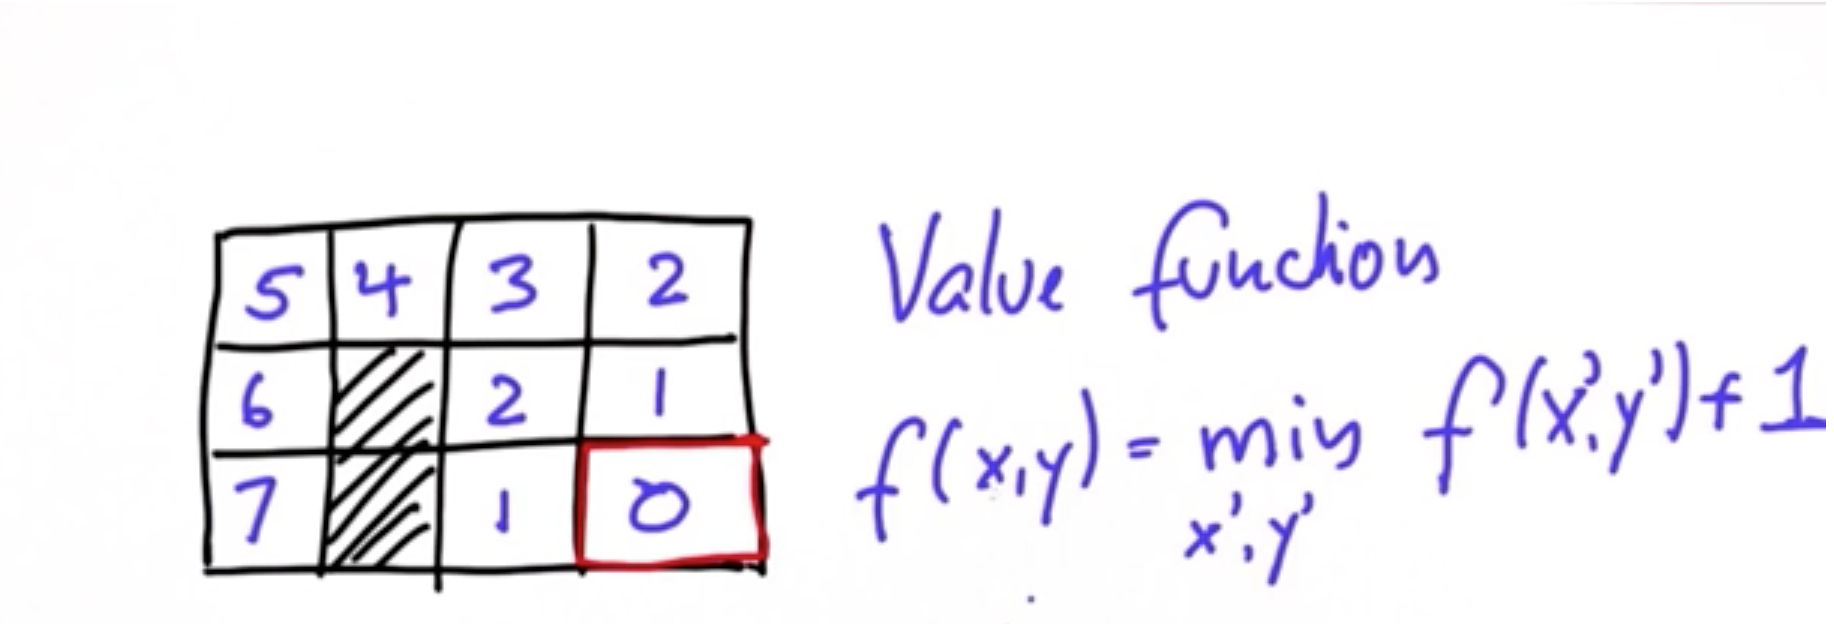 5 4 3 2
6 2 1
7 1 0
Value function
f(x,y) = min f(x',y')+1
x',y'